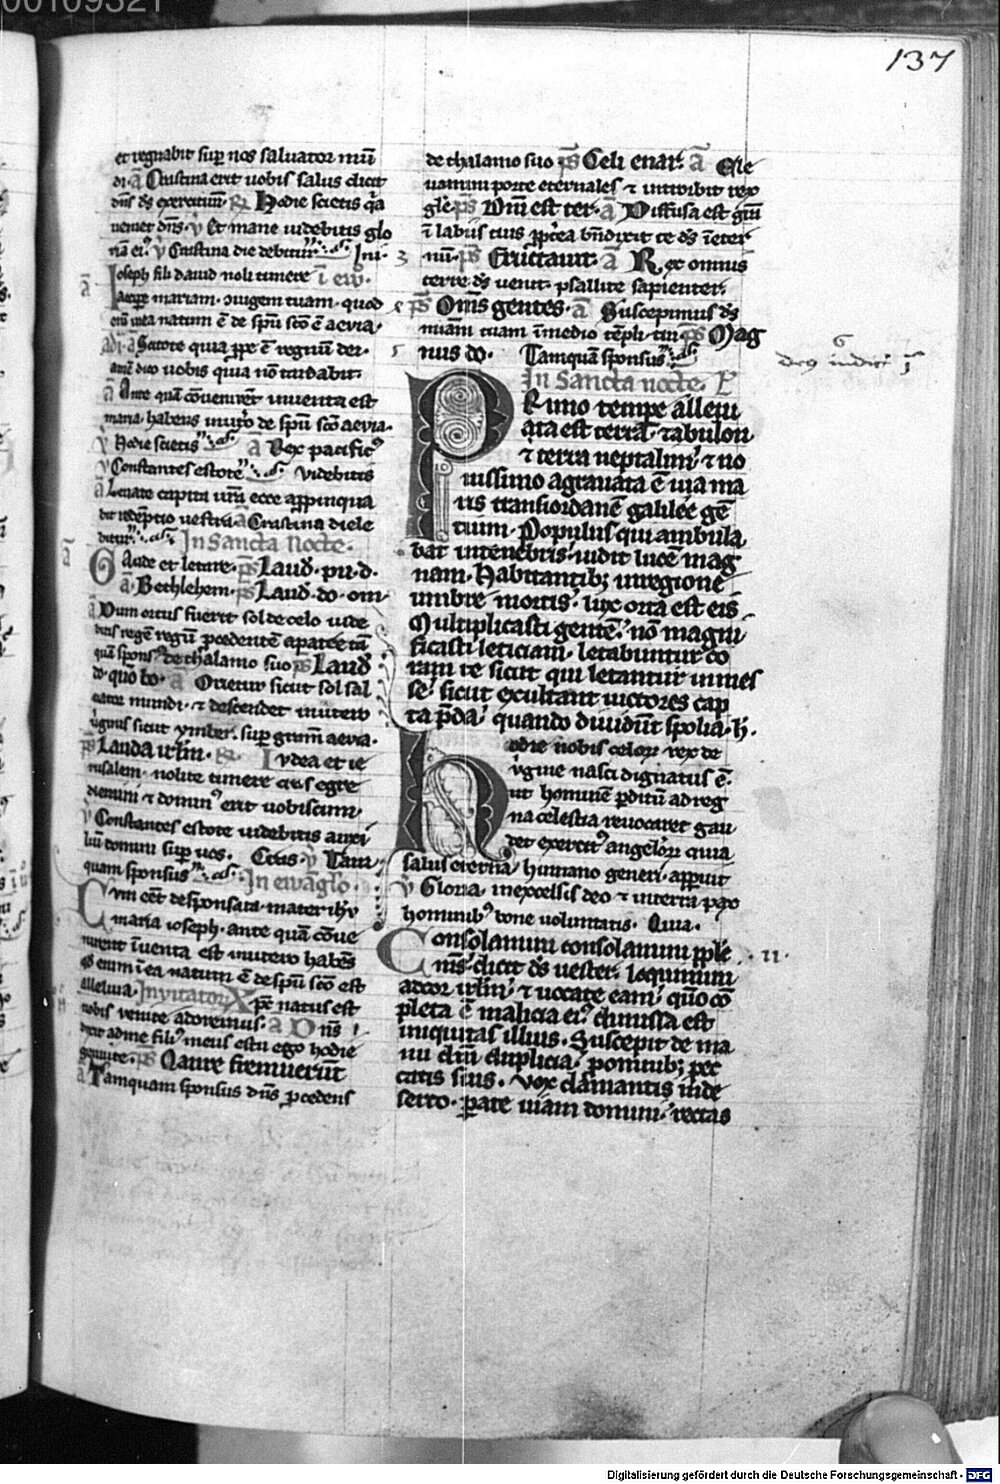 00109321
137
et regnabit sup nos saluator mū
di. ā Crastina erit uobis salus dicit
dn̄s ds̄ exercituum. R Hodie scietis qͥa
ueniet dn̄s. v̄ Et mane uidebitis glo
riā eiꝰ. v̄ Crastina die debitur. Ini
Ioseph fili dauid noli timere ī ew̄.
accipe mariam. 9iugem tuam. quod
enī in ea natum ē de spū scō ē aevia.
ad ā Scitote quia ꝓpe ē regnū dei.
amē dico uobis quia nō tardabit.
ā Ante quā cōuenirēt inuenta est
maria. habens in utero de spū scō aevia.
v̄ Hodie scietis ā Rex pacificꝰ
v̄ Constantes estote uidebitis
ā Leuate capita urā ecce appinqua
bit redēptio uestra. ā Crastina die dele
bitur. In Sancta Nocte.
Gaude et letare. ps̄ Laud. pu. d.
ā Bethlehem. ps̄ Laud. do. om
ā Dum ortus fuerit sol de celo uide
bitis regē regū ꝓcedentē a patre tā
quā sponsꝰ de thalamo suo ps̄ Laud
do. quō bo. ā Orietur sicut sol sal
uator mundi. ⁊ descendet in utero
uirginis sicut ymber. sup gramē aevia.
ps̄ Lauda irlm̄. R Iudea et ie
rusalem. nolite timere cras egre
diemini ⁊ dominꝰ erit uobiscum
v̄ Constantes estote uidebitis auxi
liū domini sup uos. Cras. v̄ Tam
quam sponsus In ewāglo.
Cum eēt desponsata. mater ihu
maria ioseph. ante quā cōue
nirent īuenta est in utero habēs
qd̄ enim ī ea natum ē de spū scō est
alleluia. Inuitator Xp̄c natus est
nobis venite adoremus. ā Dn̄s
dixit ad me filiꝰ meus es tu ego hodie
genui te. ps̄ Quare fremuerūt
ā Tamquam sponsus dn̄s ꝓcedens
de thalamo suo ps̄ Celi enar. ā Ele
uamini porte eternales ⁊ introibit rex
glē ps̄ Dn̄i est ter. ā Diffusa est grā
ī labiis tuis ꝓpterea bn̄dixit te ds̄ ī eter
nū. ps̄ Eructauit. ā Rex omnis
terre ds̄ uenit psallite sapienter.
ps̄ Om̄s gentes. ā Suscepimus ds̄
miam tuam ī medio tēpli tui ps̄ Mag
nus do. Tamquā sponsus
deus iudici
In Sancta nocte.
Primo tempe alleui
ata est terra. zabulon
⁊ terra neptalim. ⁊ no
uissimo agrauata ē uia ma
ris trans iordanē galilee gē
tium. Populus qui ambula
bat in tenebris. uidit lucē mag
nam. Habitantibꝫ in regione
umbre mortis. lux orta est eis
Multiplicasti gentē. nō magni
ficasti leticiam. letabuntur co
ram te sicut qui letantur in mes
se. sicut exultant uictores cap
ta p̄da. quando diuidūt spolia. h.
Hodie nobis celorꝝ rex de
v̄gine nasci dignatus ē.
ut hominē ꝑditū ad reg
na celestia reuocaret gau
det exercitꝰ angelorꝝ quia
salus eterna. humano generi. apparuit
v̄ Gloria. in excelsis deo ⁊ in terra pax
hominibꝰ bone uoluntatis. Quia.
Consolamini consolamini pple
mi. dicit ds̄ uester. loquimini
ad cor irlm̄. ⁊ uocate eam. qm̄ cō
pleta ē malicia eiꝰ. dimissa est
iniquitas illius. Suscepit de ma
nu dn̄i duplicia. p omnibꝫ pec
catis suis. vox clamantis in de
serto. parate uiam domini. rectas
.ii.
Digitalisierung gefördert durch die Deutsche Forschungsgemeinschaft - DFG